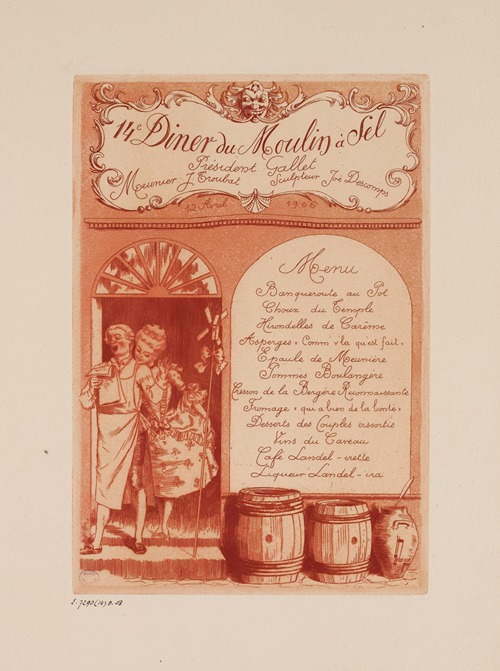 14e Dîner du Moulin à Sel
Président Gallet
Meunier J. Troubat Sculpteur Joë Descomps
12 Avril 1906
Menu
Banqueroute au Pot
Choux du Temple
Hirondelles de Carême
Asperges "Comm' s'la qu'est fait"
Epaule de Meunière
Pommes Boulangère
Cresson de la Bergère Reconnaissante
Fromage "qui a bien de la bonté"
Desserts des Couples assortis
Vins du Caveau
Café Landel-rette
Liqueur Landel-ira